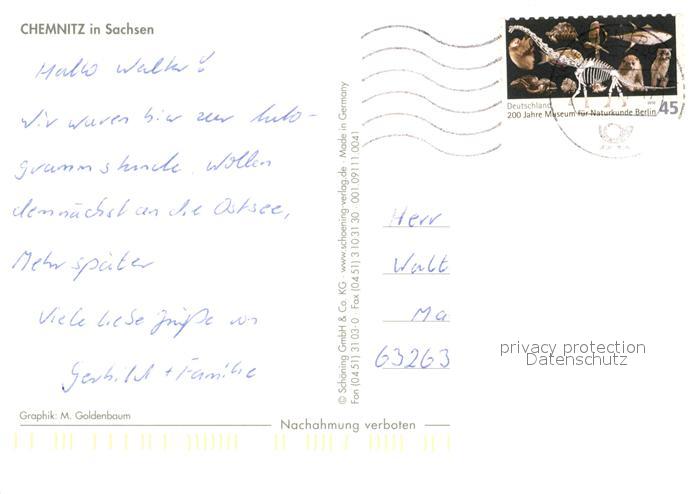 CHEMNITZ in Sachsen
Hallo Walter!
wir waren hier zur Auto-
grammstunde. Wollen
demnächst an die Ostsee,
Mehr später
Viele liebe Grüße von
Gerhild + Familie
Graphik: M. Goldenbaum
Nachahmung verboten
© Schöning GmbH & Co. KG · www.schoening-verlag.de · Made in Germany
Fon (04 51) 31 03-0 · Fax (04 51) 3 10 31 30 001 09111 0041
Deutschland
200 Jahre Museum für Naturkunde Berlin
45
Herr
Walt
Ma
63263
privacy protection
Datenschutz